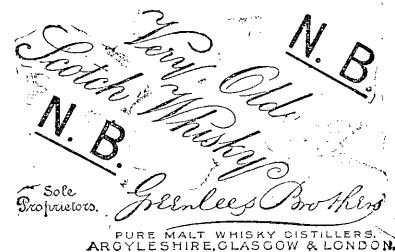 N. B.
Very Old
Scotch Whisky
N. B.
Sole
Proprietors.
Greenlees Brothers
PURE MALT WHISKY DISTILLERS.
ARGYLESHIRE, GLASGOW & LONDON.